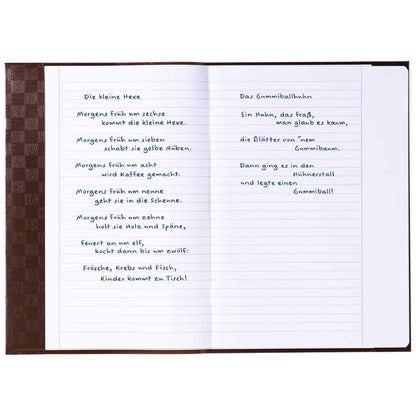 Die kleine Hexe
Morgens früh um sechse
kommt die kleine Hexe.
Morgens früh um sieben
schabt sie gelbe Rüben.
Morgens früh um acht
wird Kaffee gemacht.
Morgens früh um nenne
geht sie in die Scheune.
Morgens früh um zehne
holt sie Holz und Späne,
feuert an um elf,
kocht dann bis um zwölf:
Frösche, Krebs und Fisch,
Kinder kommt zu Tisch!
Das Gummiballhuhn
Ein Huhn, das fraß,
man glaub es kaum,
die Blätter von ˝nem
Gummibaum.
Dann ging es in den
Hühnerstall
und legte einen
Gummiball!